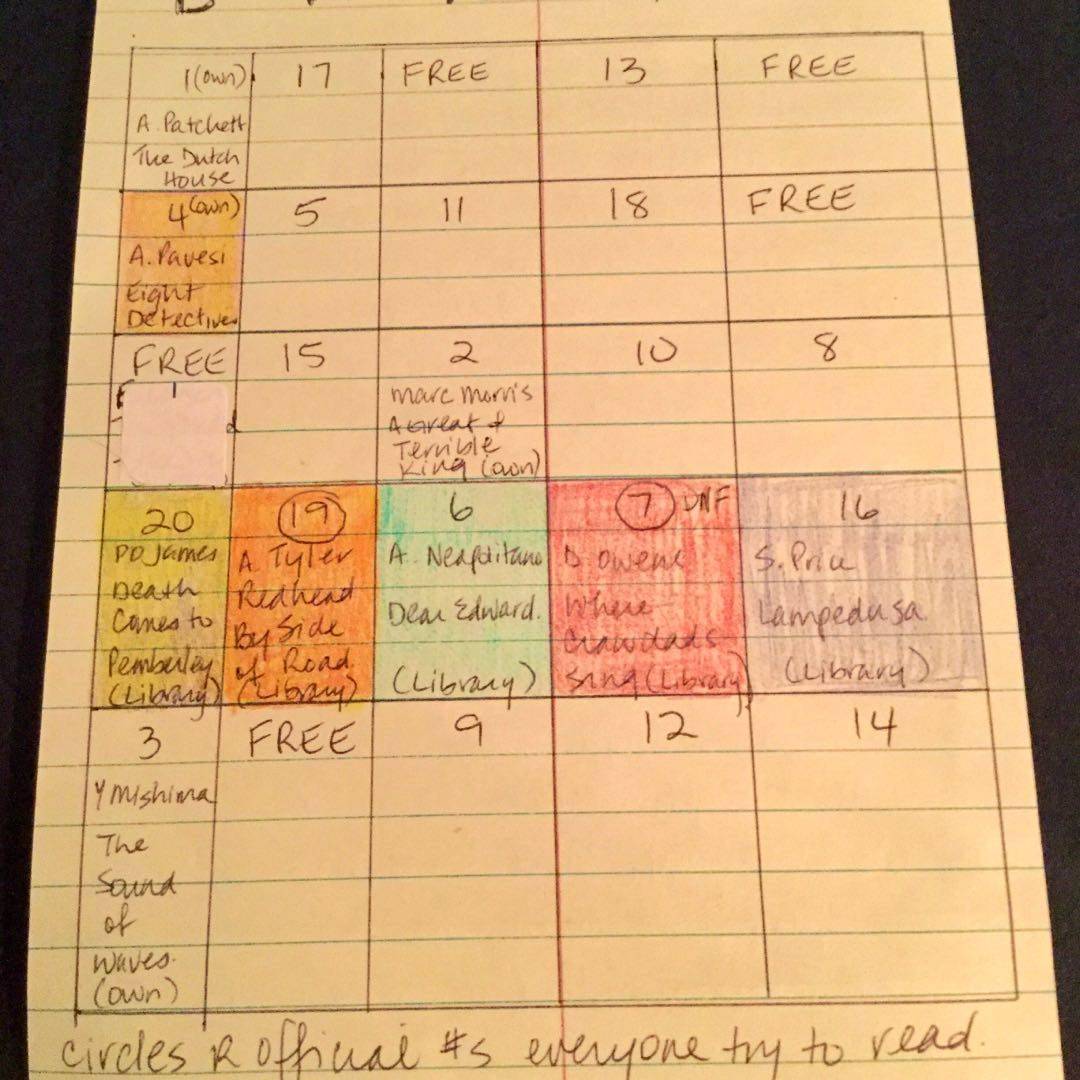 1 (own) 17 FREE 13 FREE
A. Patchett
The Dutch
House
4 (own) 5 11 18 FREE
A. Pavesi
Eight
Detectives
FREE 15 2 10 8
Marc Morris
A Great &
Terrible
King (own)
20 19 6 7 DNF 16
PD James
Death
Comes to
Pemberley
(Library)
A. Tyler
Redhead
By Side
of Road
(Library)
A. Neapolitano
Dear Edward.
(Library)
D. Owens
Where
Crawdads
Sing (Library)
S. Price
Lampedusa
(Library)
3 FREE 9 12 14
Y Mishima
The
Sound
of
Waves.
(own)
circles R official #s everyone try to read.